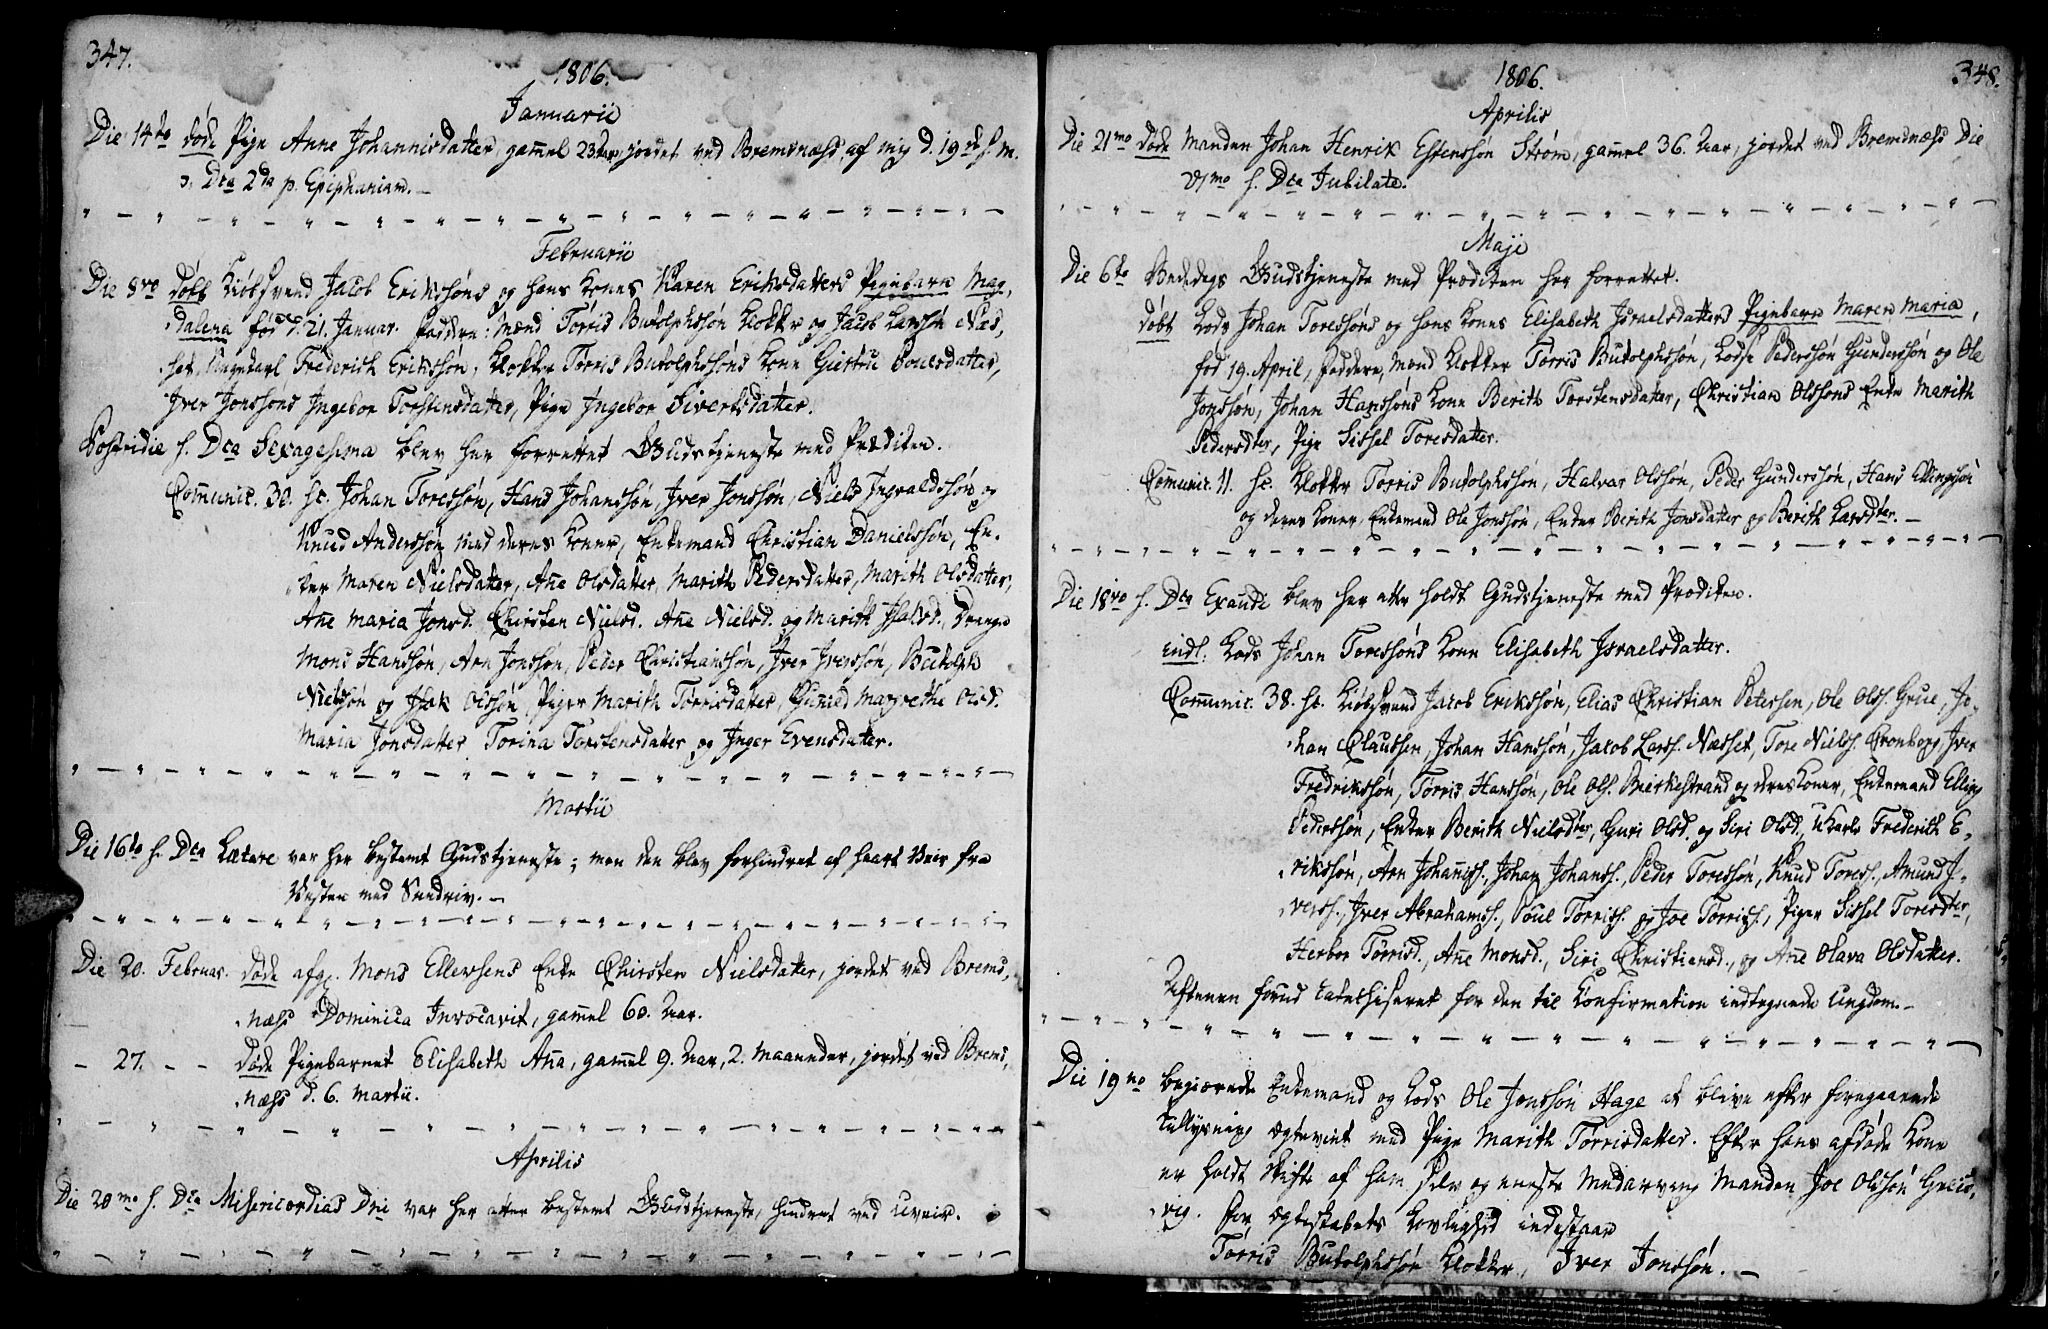 347.
1806.
Januarii
Die 14to døde Pige Anne Johannisdatter, gam̄el 23 Aar, jordet ved Bremsnæss af mig d. 19de s. m.
Dca 2da p. Epiphaniam. —
Februarii
Die 8vo døbt Kiøbsvend Jacob Erikssøns og hans Kones Karen Eriksdatters Pigebarn Mag,
„dalena fød d. 21. Januar. Faddere: Mend Tørris Butolphssøn Klokker og Jacob Larssøn Næs,
„set, Ungekarl Frederich Erikssøn, Klokker Tørris Butolphssøns Kone Giertru Poulsdatter,
Jver Jonssøns Jngebor Torstensdatter, Pige Jngebor Sivertsdatter.
Postridie s. Dca Sexagesima blev her forrettet Gudstjeneste med Prædiken.
Com̄unic. 30. sc. Johan Toressøn, Hans Johanssøn, Jver Jonssøn, Niels Jngvaldssøn og
Knud Anderssøn med deres Koner, Enkemand Christian Danielssøn, En,
„ker Maren Nielsdatter, An̄e Olsdatter, Marith Pedersdatter, Marith Olsdatter,
An̄e Maria Jonsd. Chirsten Nielsd. An̄e Nielsd. og Marith Jsaksd., Drenge
Mons Hanssøn, Arn Jonssøn, Peder Christianssøn, Jver Jverssøn, Butolph
Nielssøn og Jsak Olssøn, Piger Marith Tørrisdatter, Gunild Margrethe Olsd.
Maria Jonsdatter Torina Torstensdatter og Jnger Evensdatter.
Martii
Die 16to s. Dca Lætare var her bestemt Gudstjeneste; men den blev forhindret af haart Veir fra
Vesten med Snedriv. —
Die 20. Februar. døde afg. Mons Ellevsens Enke Chirsten Nielsdatter, jordet ved Brems,
„næss Dominica Invocavit, gam̄el 60. Aar.
— 27. — — døde Pigebarnet Elisabeth An̄a, gam̄el 9. Aar, 2. Maaneder, jordet ved Brems,
„næss d. 6. Martii.
Aprilis
Die 20mo s. Dca Misericordias Dni var her atter bestemt Gudstjeneste, hindret ved Uveir.
348.
1806.
Aprilis
Die 21mo døde Manden Johan Henrik Estenssøn Strøm, gam̄el 36. Aar, jordet ved Bremsnæss Die
s. Dca Jubilate.
Maji
Die 6to Bededags Gudstjeneste med Prædiken her forrettet.
døbt Lods Johan Toressøns og hans Kones Elisabeth Jsraelsdatters Pigebarn Maren Maria,
fød 19. April, Faddere, Mend Klokker Tørris Butolphssøn, Lods Pederssøn Gunderssøn og Ole
Jonssøn, Johan Hanssøns Kone Berith Torstensdatter, Christian Olssøns Enke Marith
Pedersdter, Pige Sissel Toresdatter.
Com̄unic. 11. sc. Klokker Tørris Butolphssøn, Halvar Olssøn, Peder Gunderssøn, Hans Ellingssøn
og deres Koner, Enkemand Ole Jonssøn, Enker Berith Jonsdatter og Berith Larsdter. —
Die 18vo s. Dca Exaudi blev her atter holdt Gudstjeneste med Prædiken.
Indl. Lods Johan Toressøns Kone Elisabeth Jsraelsdatter.
Com̄unic. 38. sc. Kiøbsvend Jacob Erikssøn, Elias Christian Petersen, Ole Olss. Grue, Jo,
„han Claussen, Johan Hanssøn, Jacob Larss. Næsset, Tore Nielss. Cronborg, Jver
Fredrikssøn, Tørris Hanssøn, Ole Olss. Bierkestrand og deres Koner, Enkemand Elling
Pederssøn, Enker Berith Nielsdter, Guri Olsd. og Siri Olsd., UKarle Frederich E,
„rikssøn, Arn Johaniss., Johan Johanss., Peder Toressøn, Knud Toress., Amund J,
„verss., Jver Abrahamss., Poul Tørriss. og Joe Tørriss., Piger Sissel Toresdter,
Herbor Tørrisd., An̄e Monsd., Siri Christiansd., og An̄e Olava Olsdatter.
Aftenen forud catechiseret for den til Confirmation indtegnede Ungdom. —
Die 19no begierede Enkemand og Lods Ole Jonssøn Hage at blive efter foregaaende
Tillysning egteviet med Pige Marith Tørrisdatter. Efter hans afdøde Kone
er holdt Skifte af ham selv og eneste Medarving Manden Joe Olssøn Greis,
„vig. For Egteskabets Lovlighed indestaar
Tørris Butolphssøn Klokker, Jver Jonssøn. —